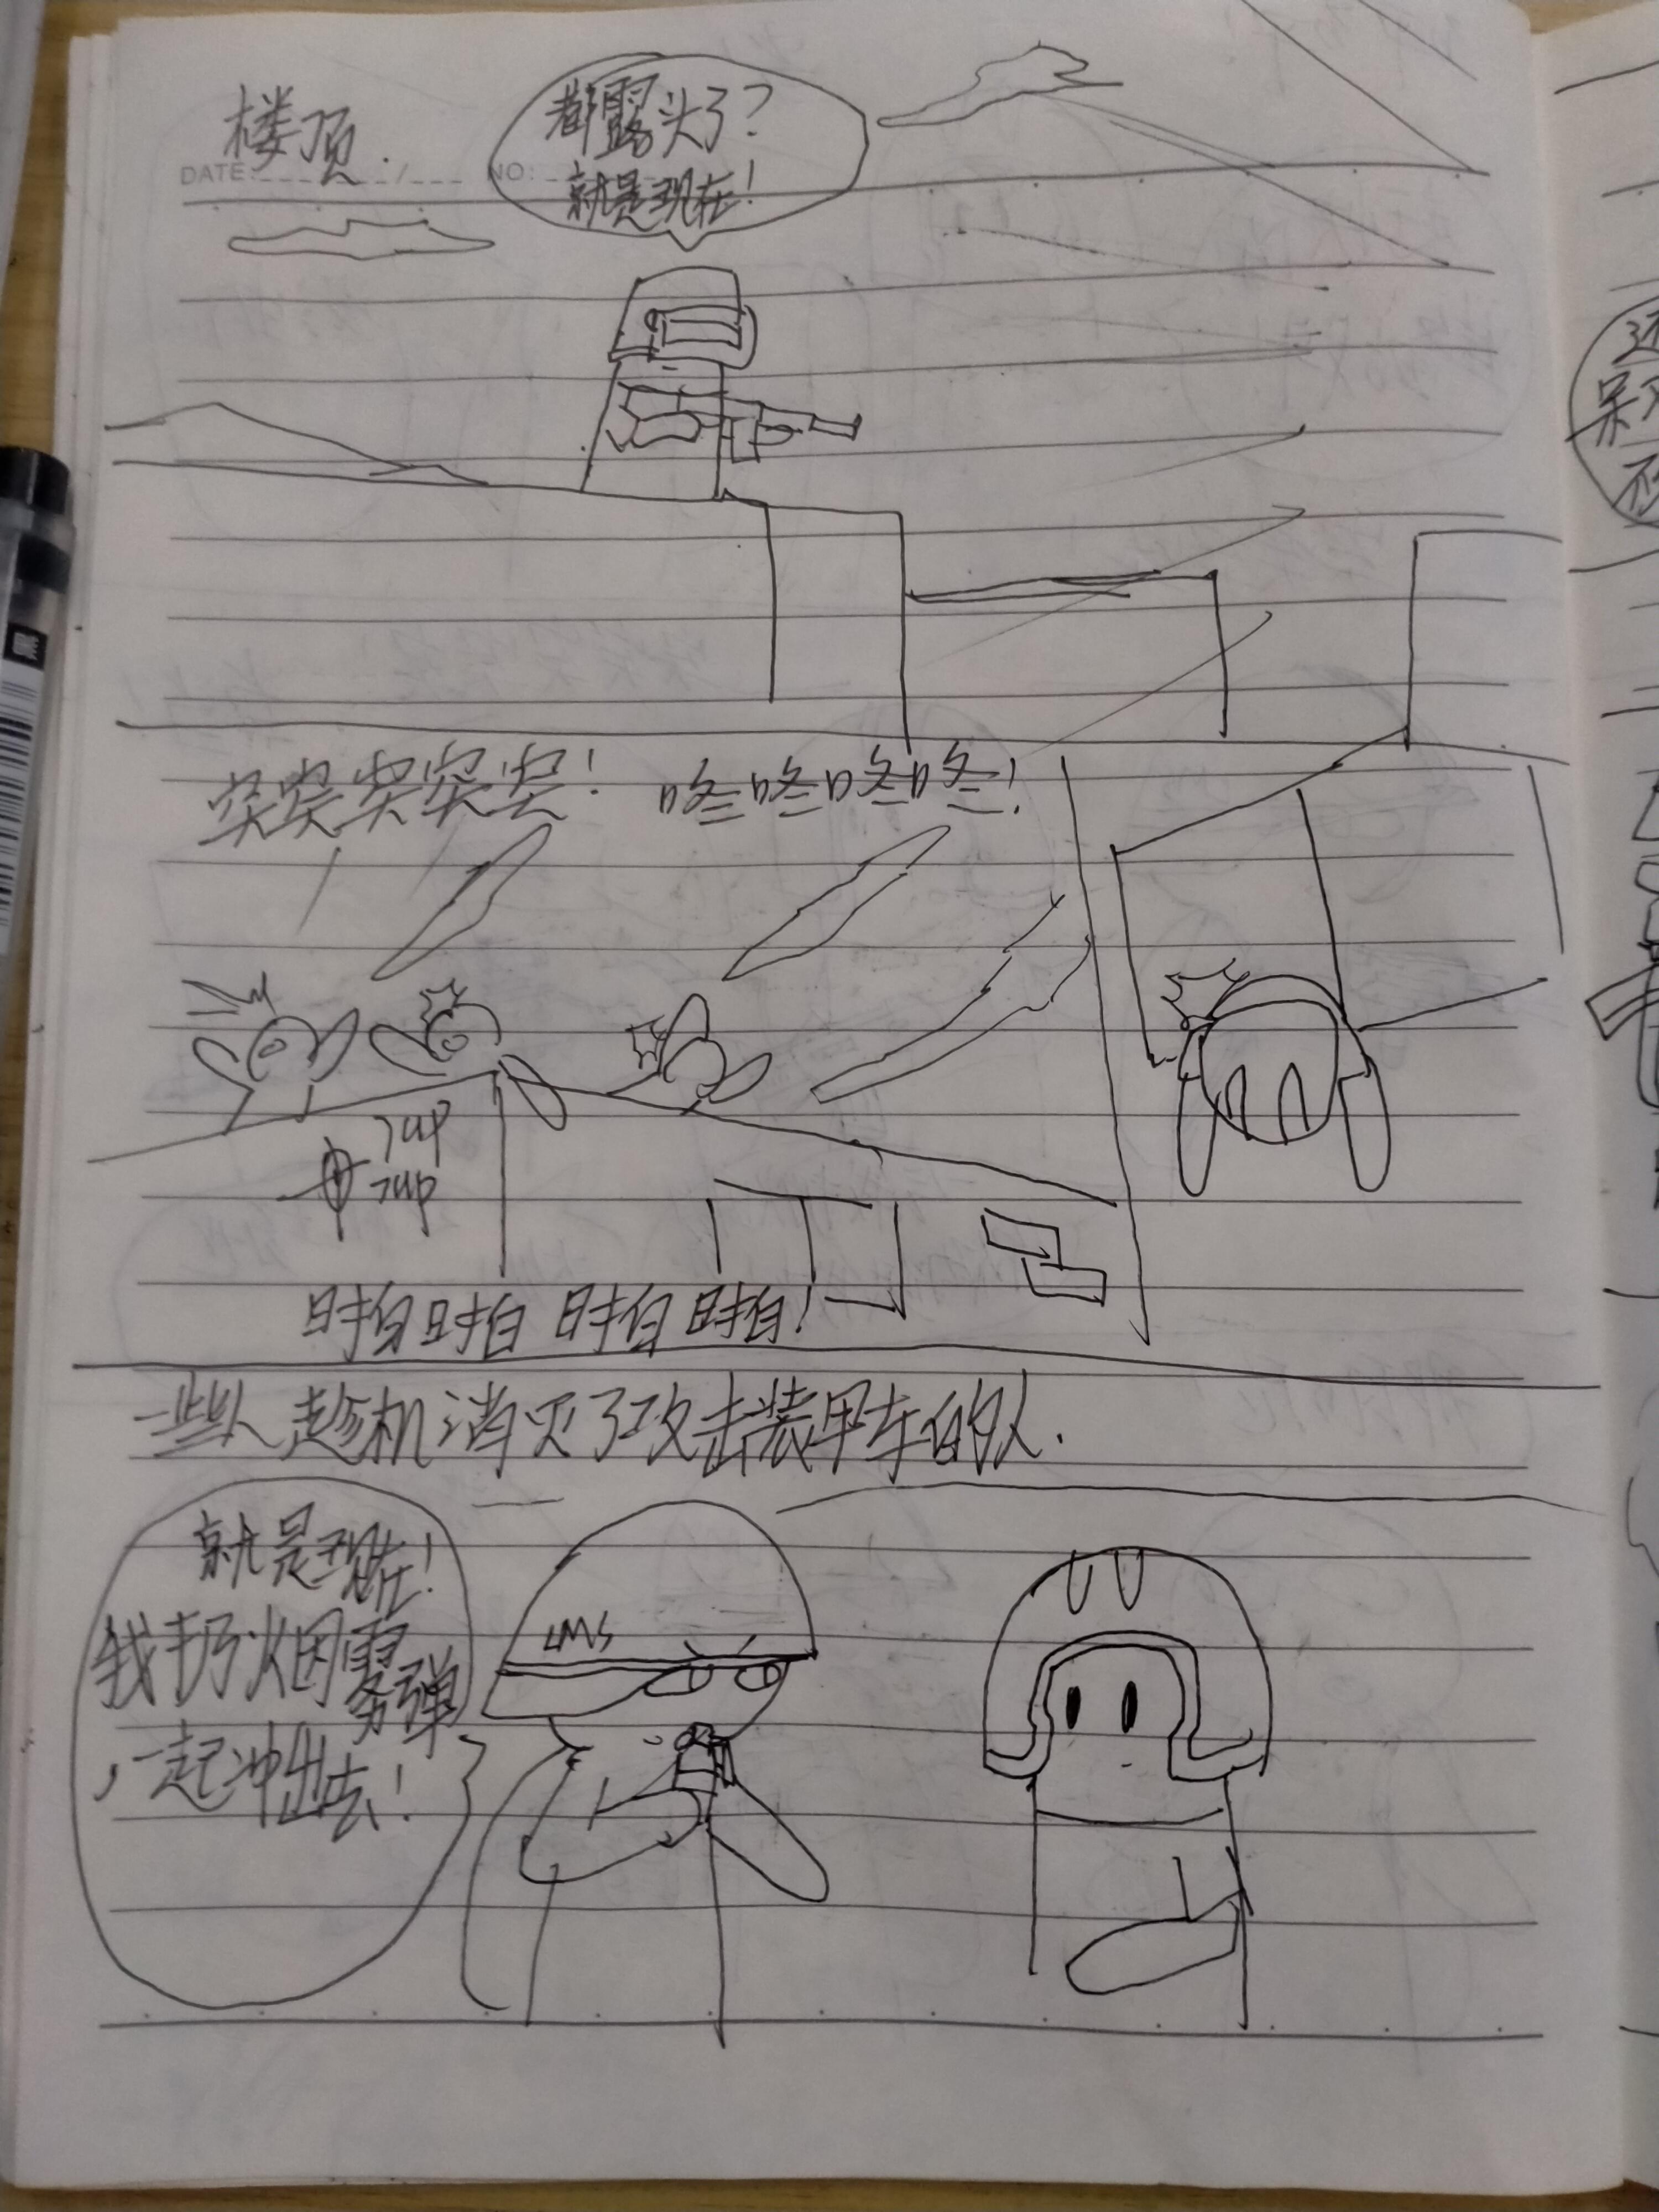 楼顶.
DATE: / NO:
都露头了?
就是现在!
突突突突突!
咚咚咚咚!
7up
7up
一些人趁机消灭了攻击装甲车的人.
就是现在!
我扔烟雾弹
,一起冲出去!
LMS
还